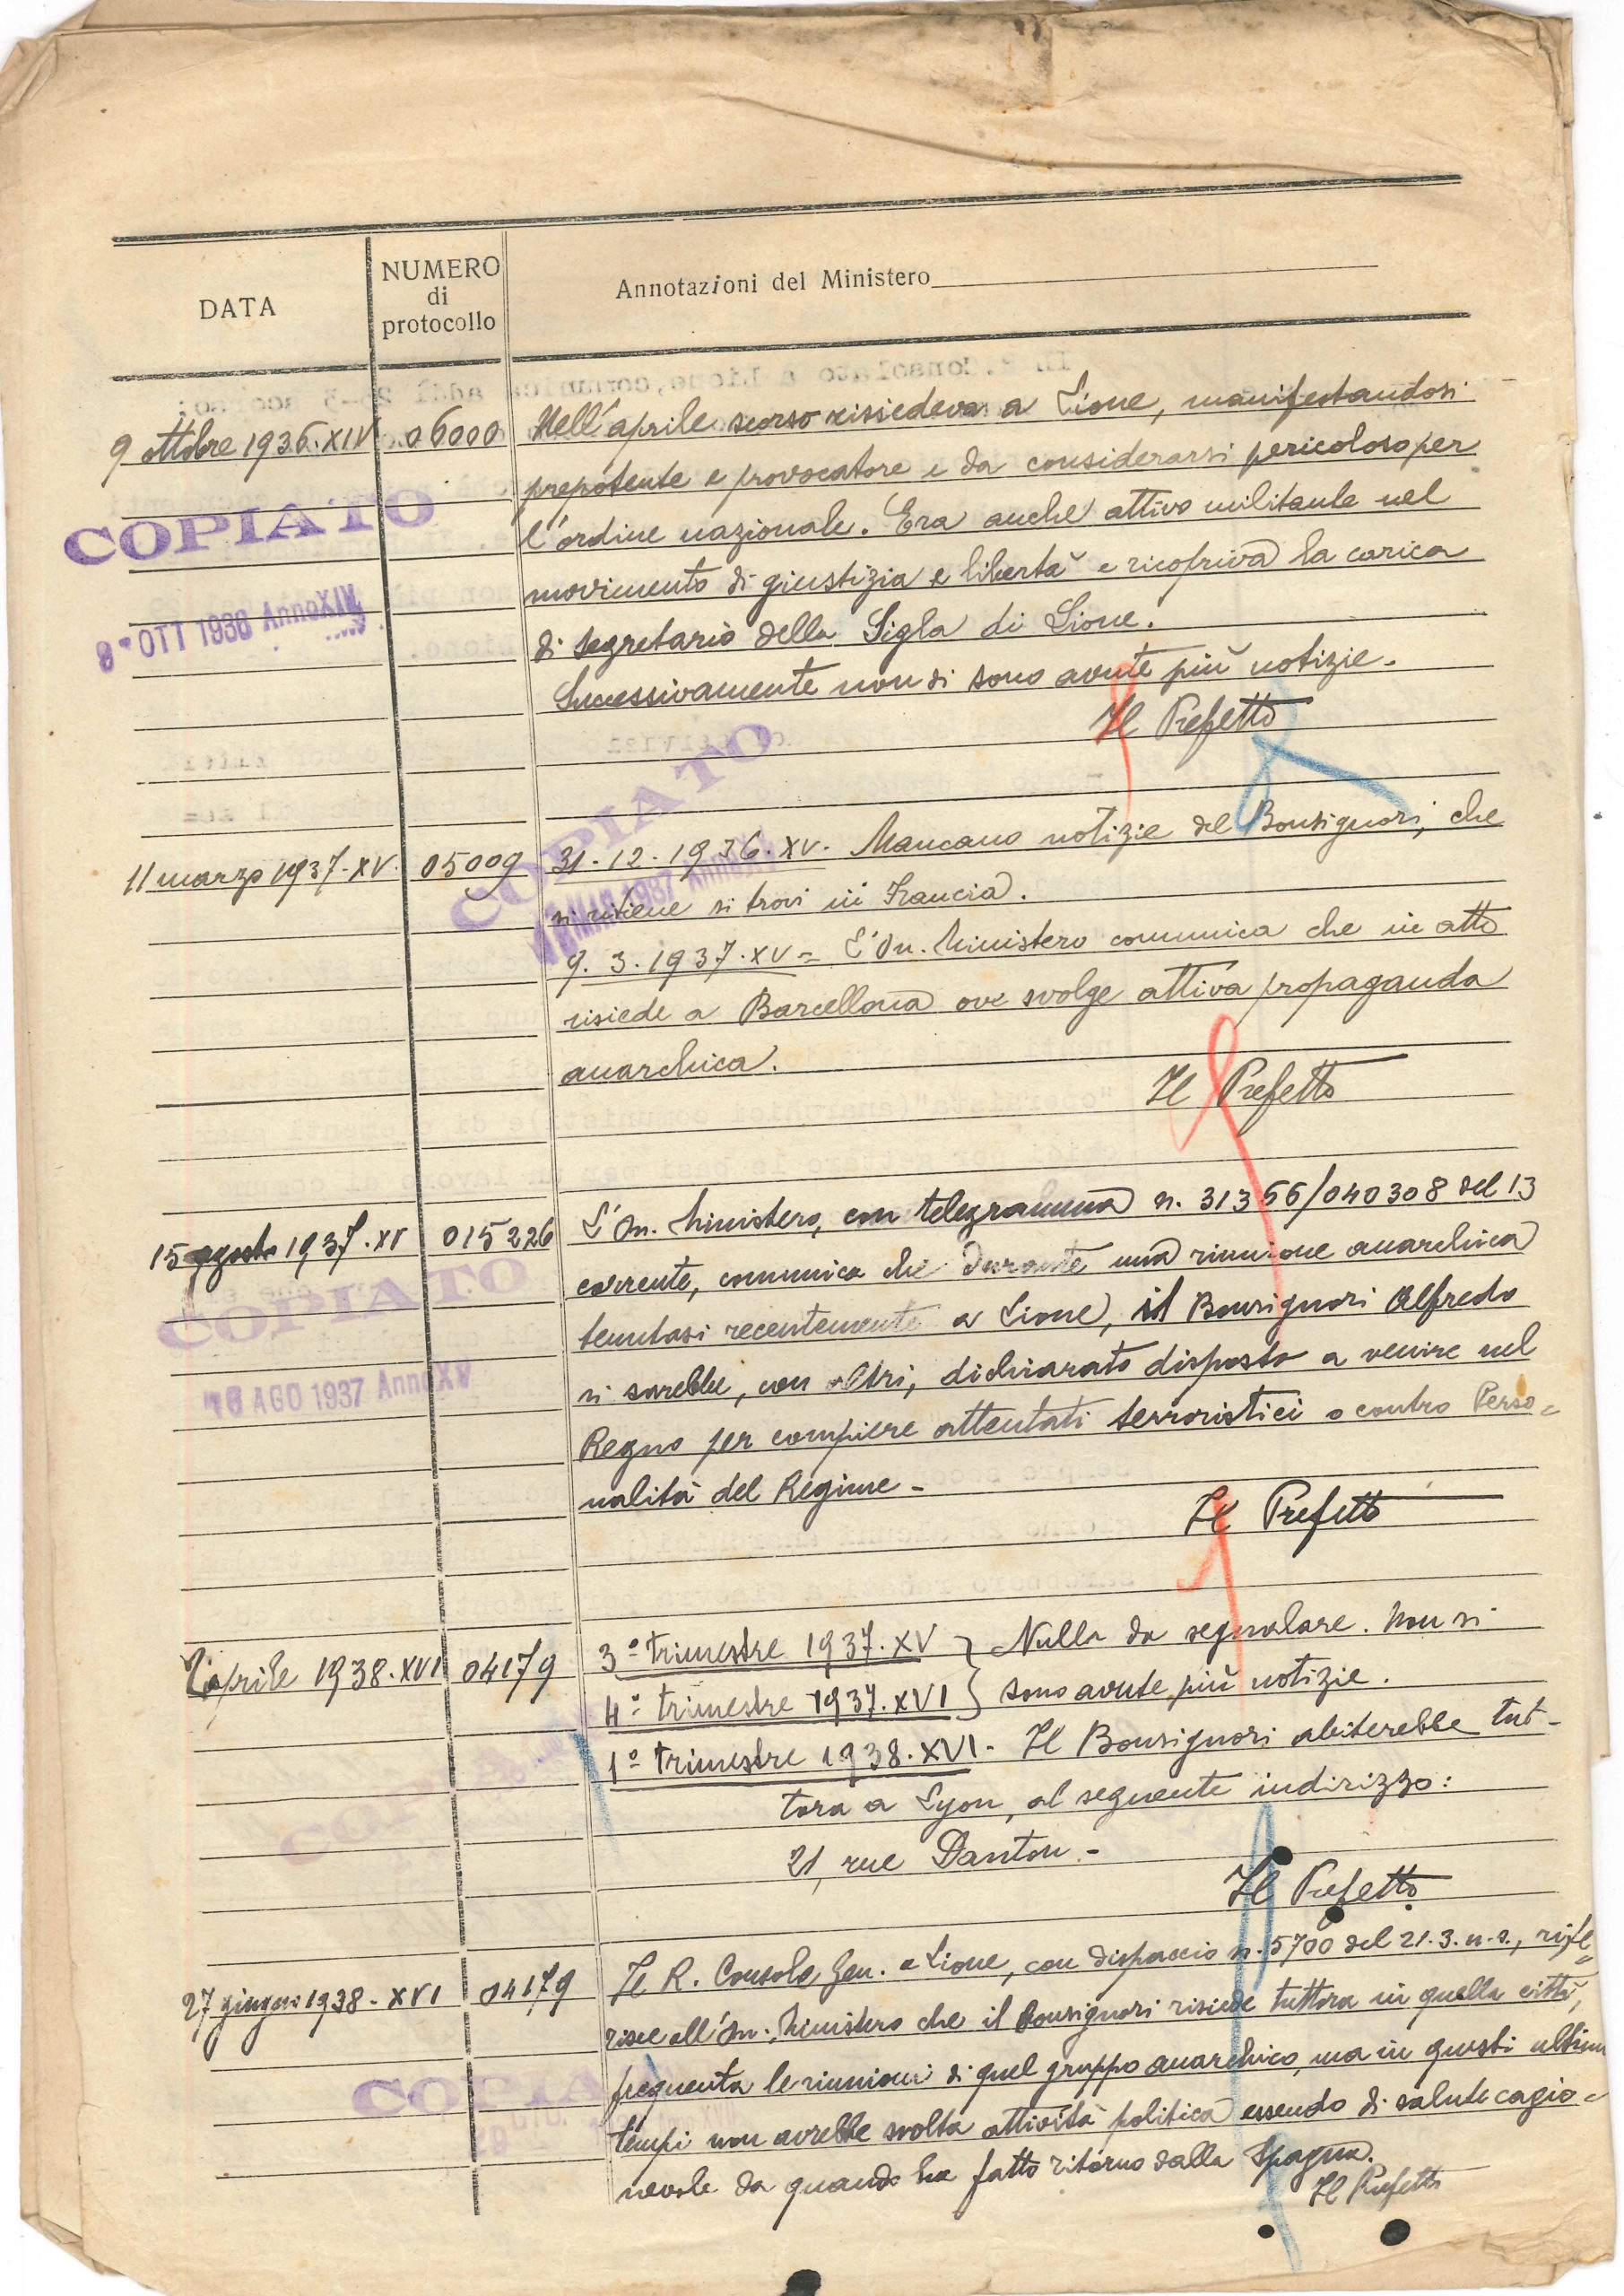 DATA
NUMERO
di
protocollo
Annotazioni del Ministero
9 ottobre 1936.XIV
06000
Nell'aprile scorso risiedeva a Lione, manifestandosi
prepotente e provocatore e da considerarsi pericoloso per
l'ordine nazionale. Era anche attivo militante nel
movimento di giustizia e libertà e ricopriva la carica
di segretario della Sigla di Lione.
Successivamente non si sono avute più notizie.
Il Prefetto
COPIATO
9-OTT 1936 Anno XIV
11 marzo 1937.XV.
05009
31-12-1936.XV. Mancano notizie del Bonsignori, che
si ritiene si trovi in Francia.
9.3.1937.XV = L'On. Ministero comunica che in atto
risiede a Barcellona ove svolge attiva propaganda
anarchica.
Il Prefetto
COPIATO
MAR 1937 Anno XV
15 agosto 1937.XV
015226
L'On. Ministero, con telegramma n. 31356/040308 del 13
corrente, comunica che durante una riunione anarchica
tenutasi recentemente a Lione, il Bonsignori Alfredo
si sarebbe, con altri, dichiarato disposto a venire nel
Regno per compiere attentati terroristici o contro Perso=
nalità del Regime -
Il Prefetto
COPIATO
16 AGO 1937 Anno XV
aprile 1938.XVI
04179
3° trimestre 1937.XV } Nulla da segnalare. Non si
4° trimestre 1937.XVI } sono avute più notizie.
1° trimestre 1938.XVI - Il Bonsignori abiterebbe tut-
tora a Lyon, al seguente indirizzo:
21, rue Danton -
Il Prefetto
27 giugno 1938 - XVI
04179
Il R. Console Gen. a Lione, con dispaccio n. 5700 del 21.3.u.s., rife=
risce all'On. Ministero che il Bonsignori risiede tuttora in quella città,
frequenta le riunioni di quel gruppo anarchico, ma in questi ultimi
tempi non avrebbe svolta attività politica essendo di salute cagio=
nevole da quando ha fatto ritorno dalla Spagna.
Il Prefetto
COPIA